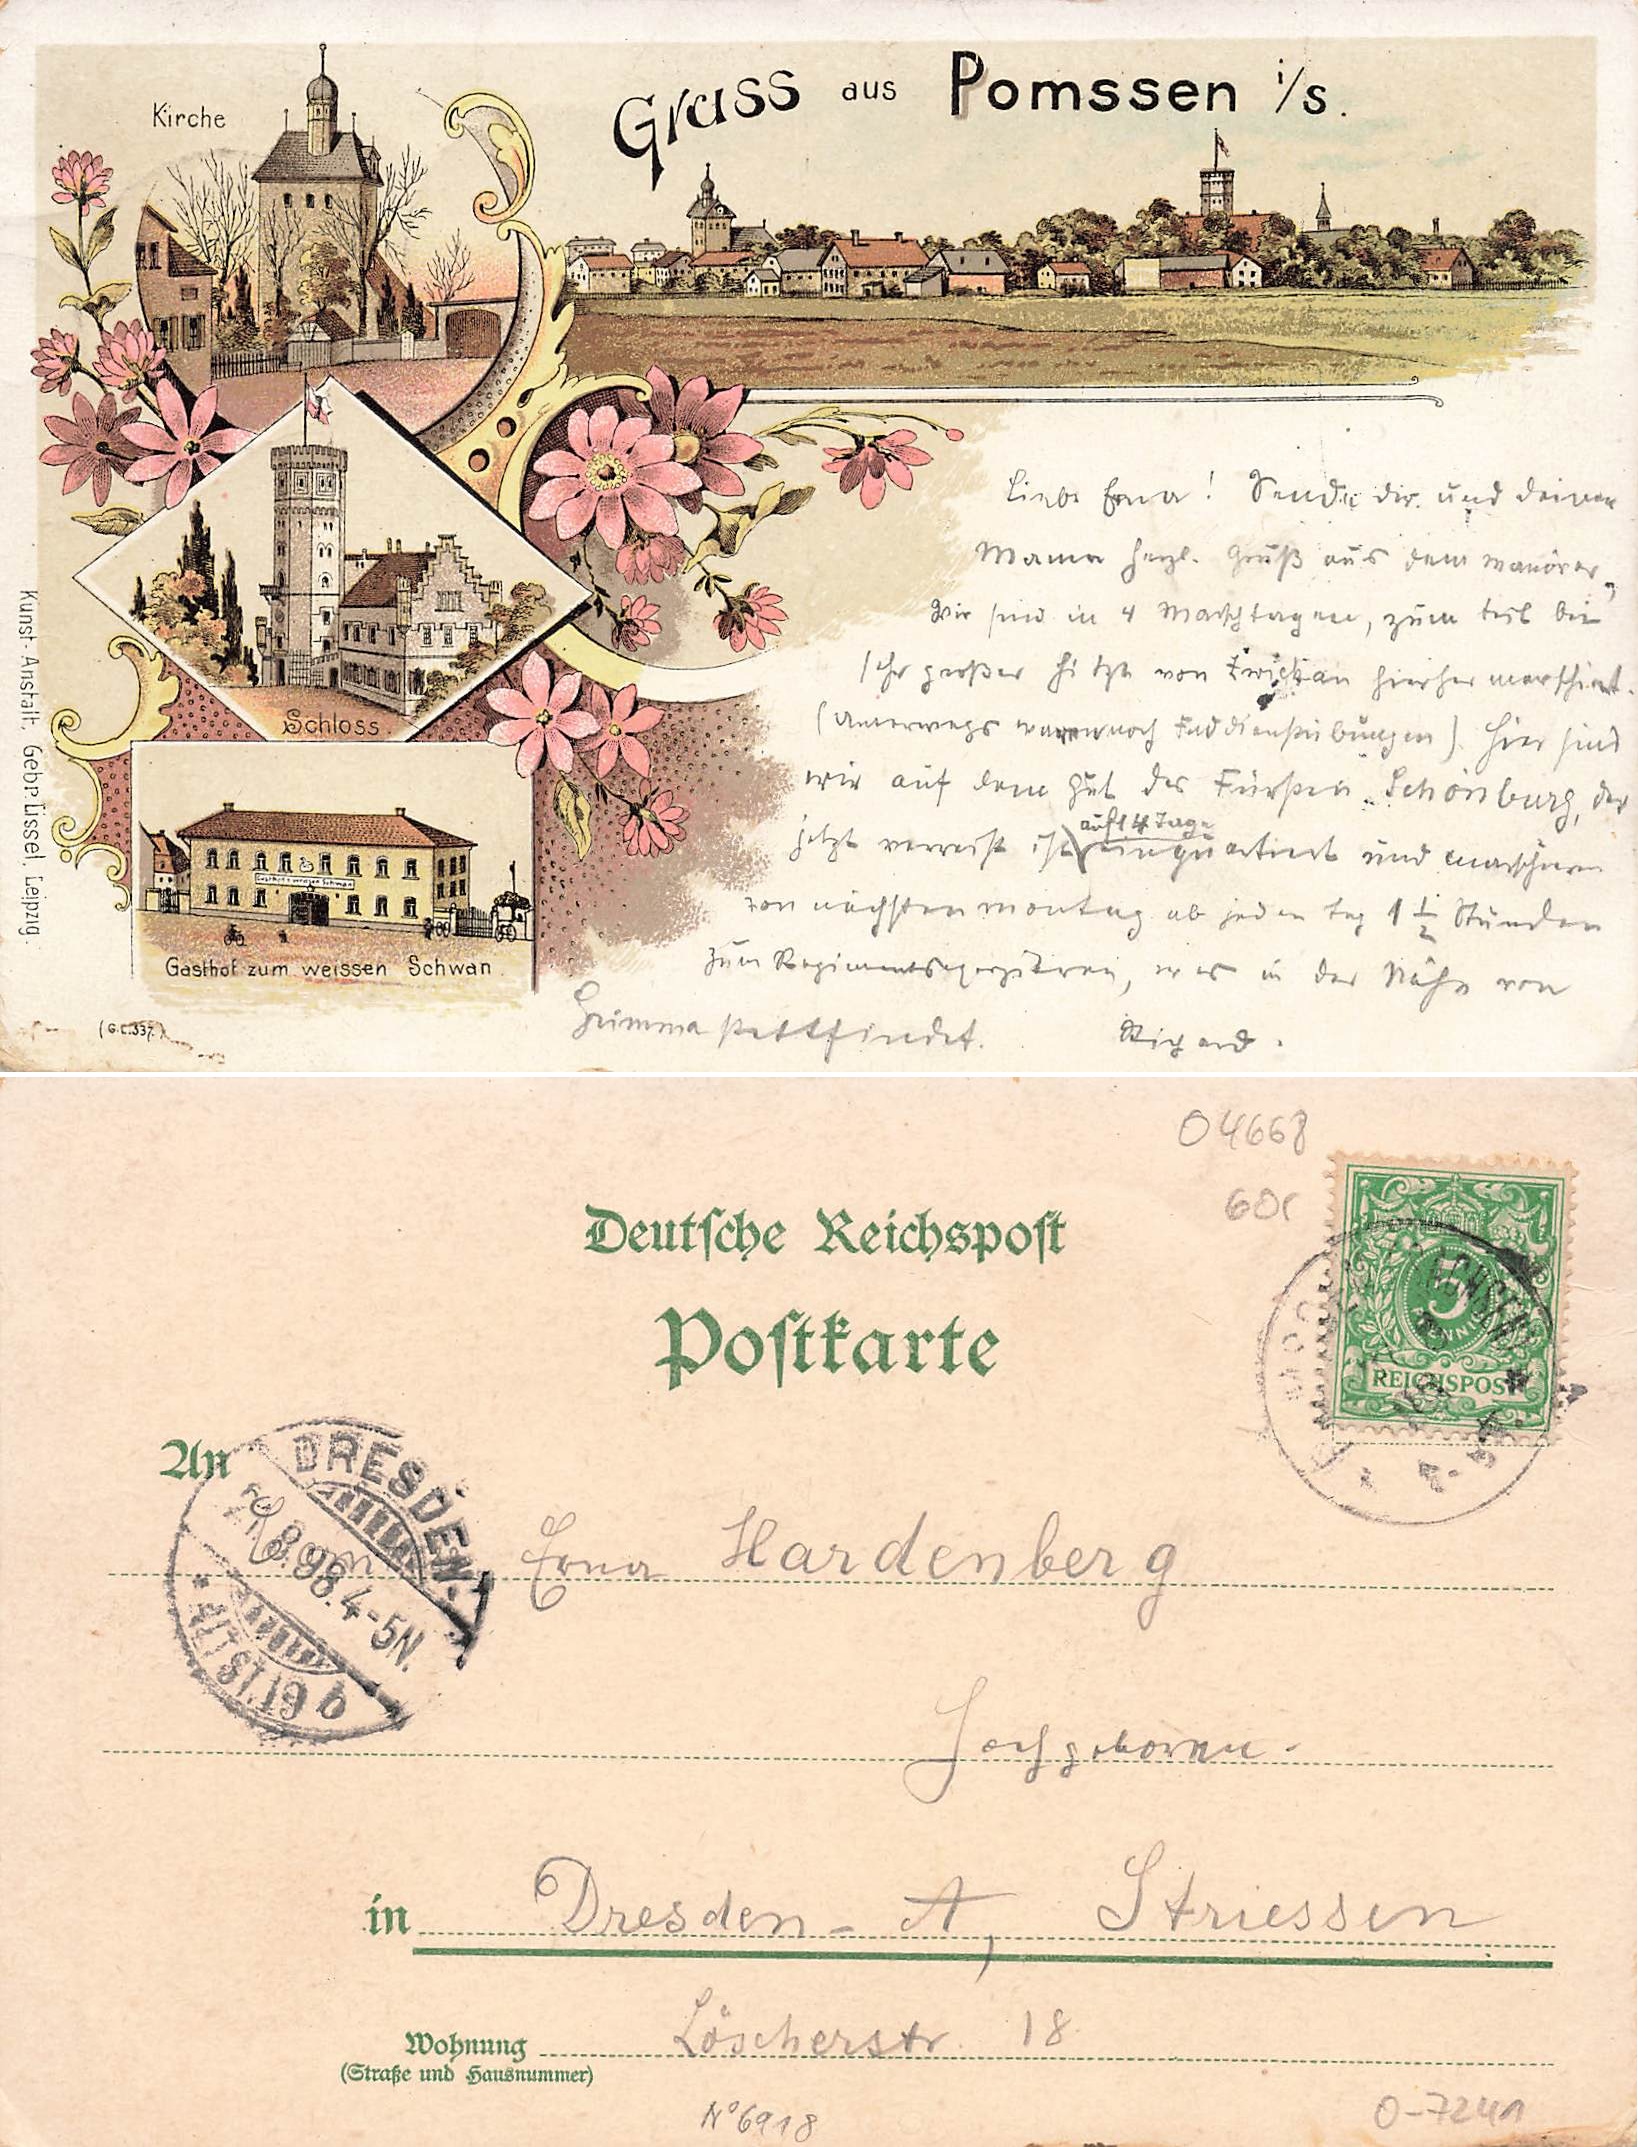 Gruss aus Pomssen i/S.
Kirche
Schloss
Gasthof z. weissen Schwan
Gasthof zum weissen Schwan.
Kunst-Anstalt, Gebr. Lissel, Leipzig.
(G.L.337.)
Liebe Erna! Sende dir und deiner
Mama herzl. Gruß aus dem Manöver
Wir sind in 4 Marschtagen, zum teil bei
sehr großer Hitze von Zwickau hierher marschiert.
(Unterwegs waren noch Felddienstübungen). Hier sind
wir auf dem Gut des Fürsten Schönburg, der
auf 14 Tage
jetzt verreist ist einquartiert und marschieren
von nächsten Montag ab jeden Tag 1 1/2 Stunden
zum Regimentsexerzieren, was in der Nähe von
Grimma stattfindet. Richard.
04668
60
Deutsche Reichspost
Postkarte
5
REICHSPOST
An
DRESDEN.
ALTST. 16
8.98.4-5N.
Erna Hardenberg
Hochgeboren.
in Dresden-A, Striessen
Wohnung Löscherstr. 18
(Straße und Hausnummer)
N° 6918
O-7241